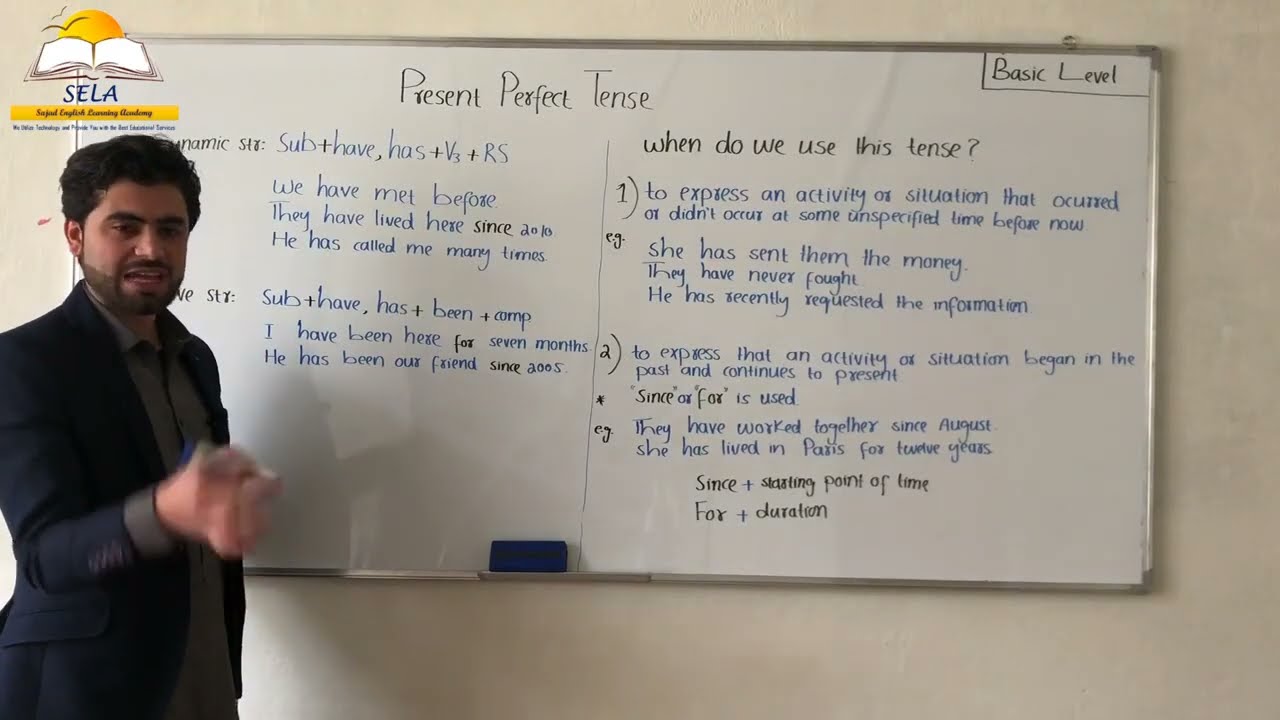 SELA
Sajad English Learning Academy
We Utilize Technology and Provide You with the Best Educational Services
Present Perfect Tense
Basic Level
namic str: Sub+have, has+V3+RS
We have met before.
They have lived here since 2010.
He has called me many times.
ve str: Sub+have, has+ been+comp
I have been here for seven months.
He has been our friend since 2005.
when do we use this tense?
1) to express an activity or situation that ocurred
or didn't occur at some unspecified time before now.
e.g. she has sent them the money.
They have never fought.
He has recently requested the information.
2) to express that an activity or situation began in the
past and continues to present
* "Since" or "for" is used.
eg. They have worked together since August.
she has lived in Paris for twelve years.
Since + starting point of time
For + duration